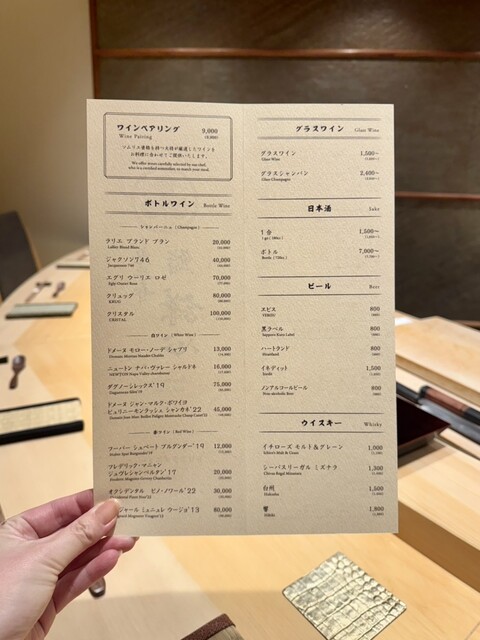 ワインペアリング 9,000
Wine Pairing
ソムリエ資格を持つ大将が厳選したワインを
お料理に合わせてご提供いたします。
We offer wines carefully selected by our chef,
who is a certified sommelier, to match your meal.
ボトルワイン Bottle Wine
シャンパーニュ ( Champagne )
ラリエ ブラン ド ブラン 20,000
Lallier Blanc
ジャクソン746 40,000
Jacquesson 746
エグリ ウーリエ ロゼ 70,000
Egly-Ouriet Rose
クリュッグ 80,000
KRUG
クリスタル 100,000
CRISTAL
白ワイン ( White Wine )
ドメーヌ モロー・ノーデ シャブリ 13,000
Domaine Moreau-Naudet Chablis
ニュートン ナパ・ヴァレー シャルドネ 16,000
NEWTON Napa Valley chardonnay
ダグノーシレックス'19 75,000
ドメーヌ ジャン・マルク・ボワイヨ
ピュリニーモンラッシェ シャンカネ'22 45,000
赤ワイン ( Red Wine )
フーバー シュペート ブルグンダー'19 12,000
フレデリック・マニャン
ジュヴレシャンベルタン'17 20,000
オクシデンタル ピノ・ノワール'22 30,000
ジャール ミュニュレ ウージョ'13 80,000
グラスワイン Glass Wine
グラスワイン 1,500~
Glass Wine
グラスシャンパン 2,400~
Glass Champagne
日本酒 Sake
1合 1,500~
ボトル 7,000~
ビール Beer
ヱビス 800
YEBISU
黒ラベル 800
Sapporo Kuro Label
ハートランド 800
Heartland
イネディット 1,500
Inedit
ノンアルコールビール 800
Non-alcoholic Beer
ウイスキー Whisky
イチローズ モルト&グレーン 1,000
Ichiro's Malt & Grain
シーバスリーガル ミズナラ 1,300
Chivas Regal Mizunara
白州 1,500
Hakushu
響 1,800
Hibiki